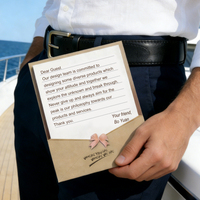 Dear Guest
Our design team is committed to
designing some diverse products which
show your attitude and together we
explore the unknown and break through
Never give up and always aim for the
year is our philosophy towards our
products and services.
Thank you
Your friend